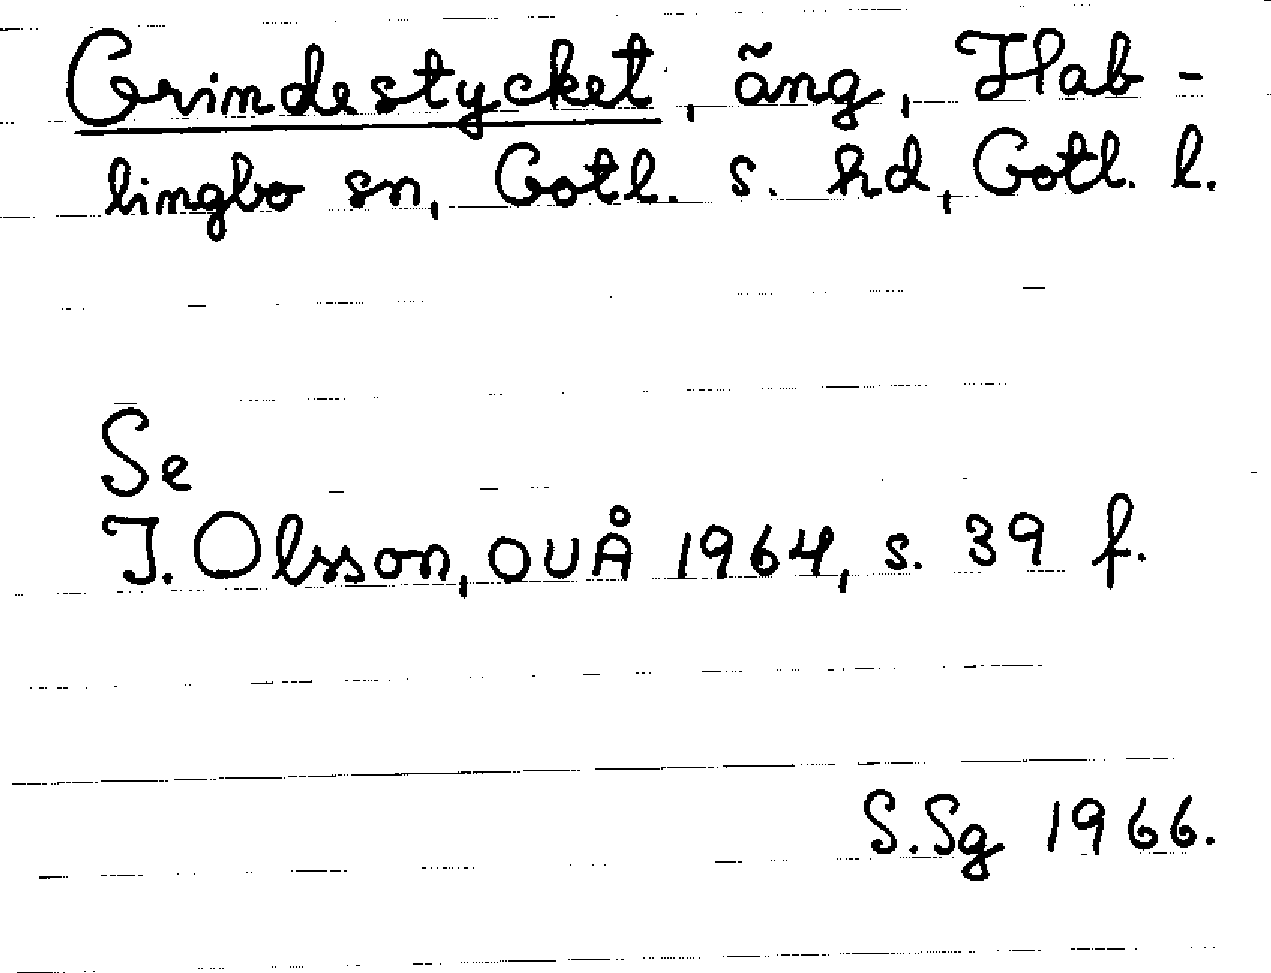 Grindestycket, äng, Hab-
lingbo sn, Gotl. s. hd, Gotl. l.
Se
I. Olsson, OUÅ 1964, s. 39 f.
S.Sg 1966.